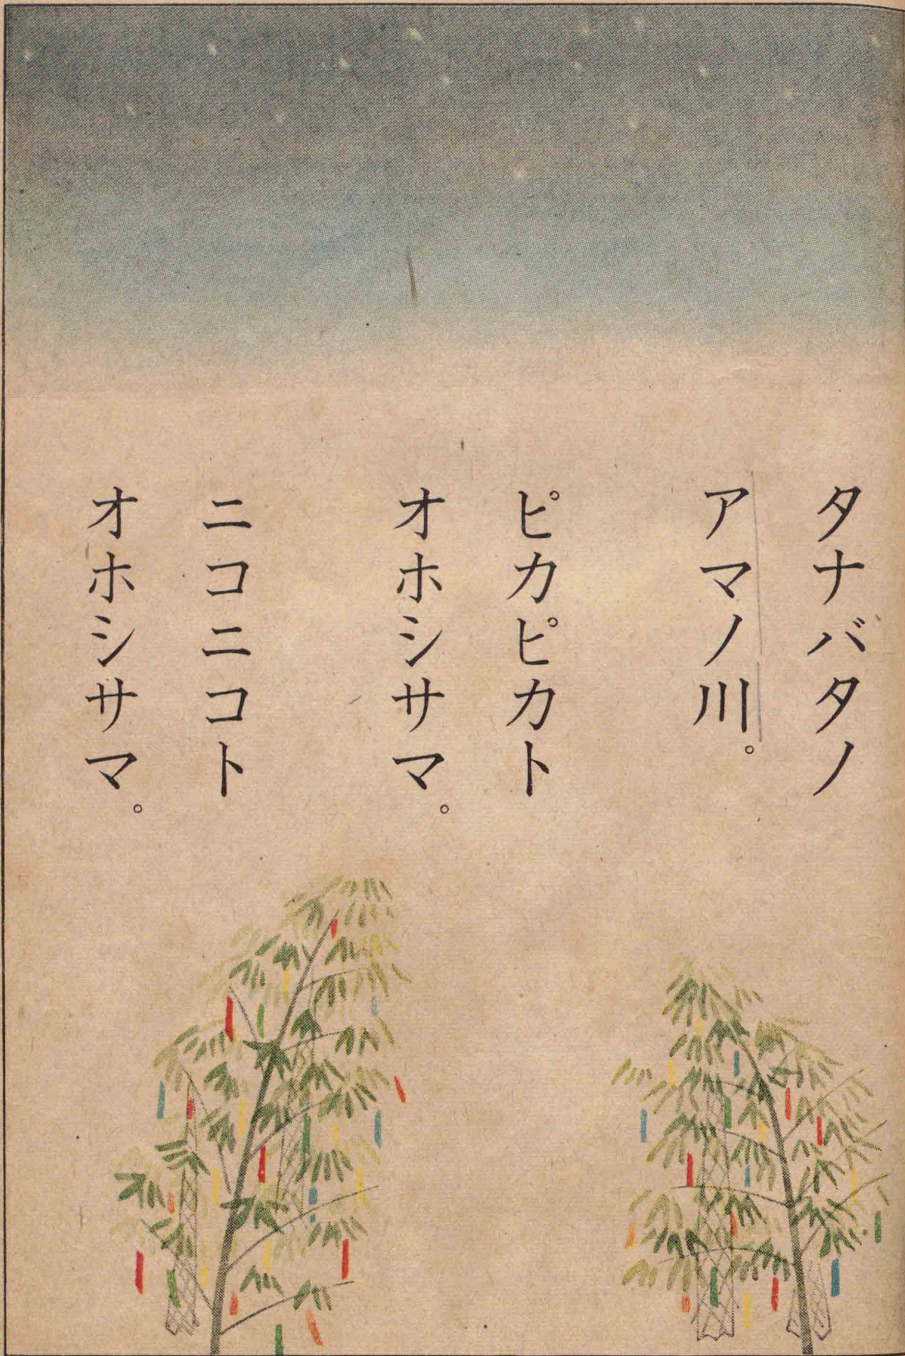 タナバタノ
アマノ川。
ピカピカト
オホシサマ。
ニコニコト
オホシサマ。